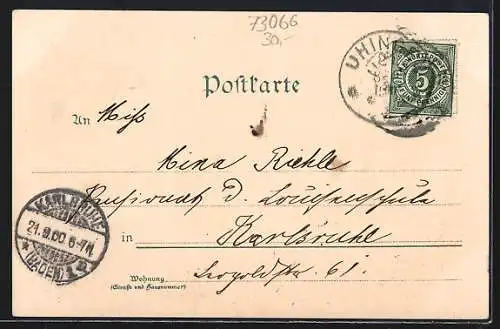 73066
30,-
UHIN
Postkarte
5
An Miss
Mina Riehle
Pensionat d. Louisenschule
KARLSRUHE
21.8.00.6-7N.
(BADEN)
in Karlsruhe
Leopoldstr. 61.
Wohnung
(Straße und Hausnummer)